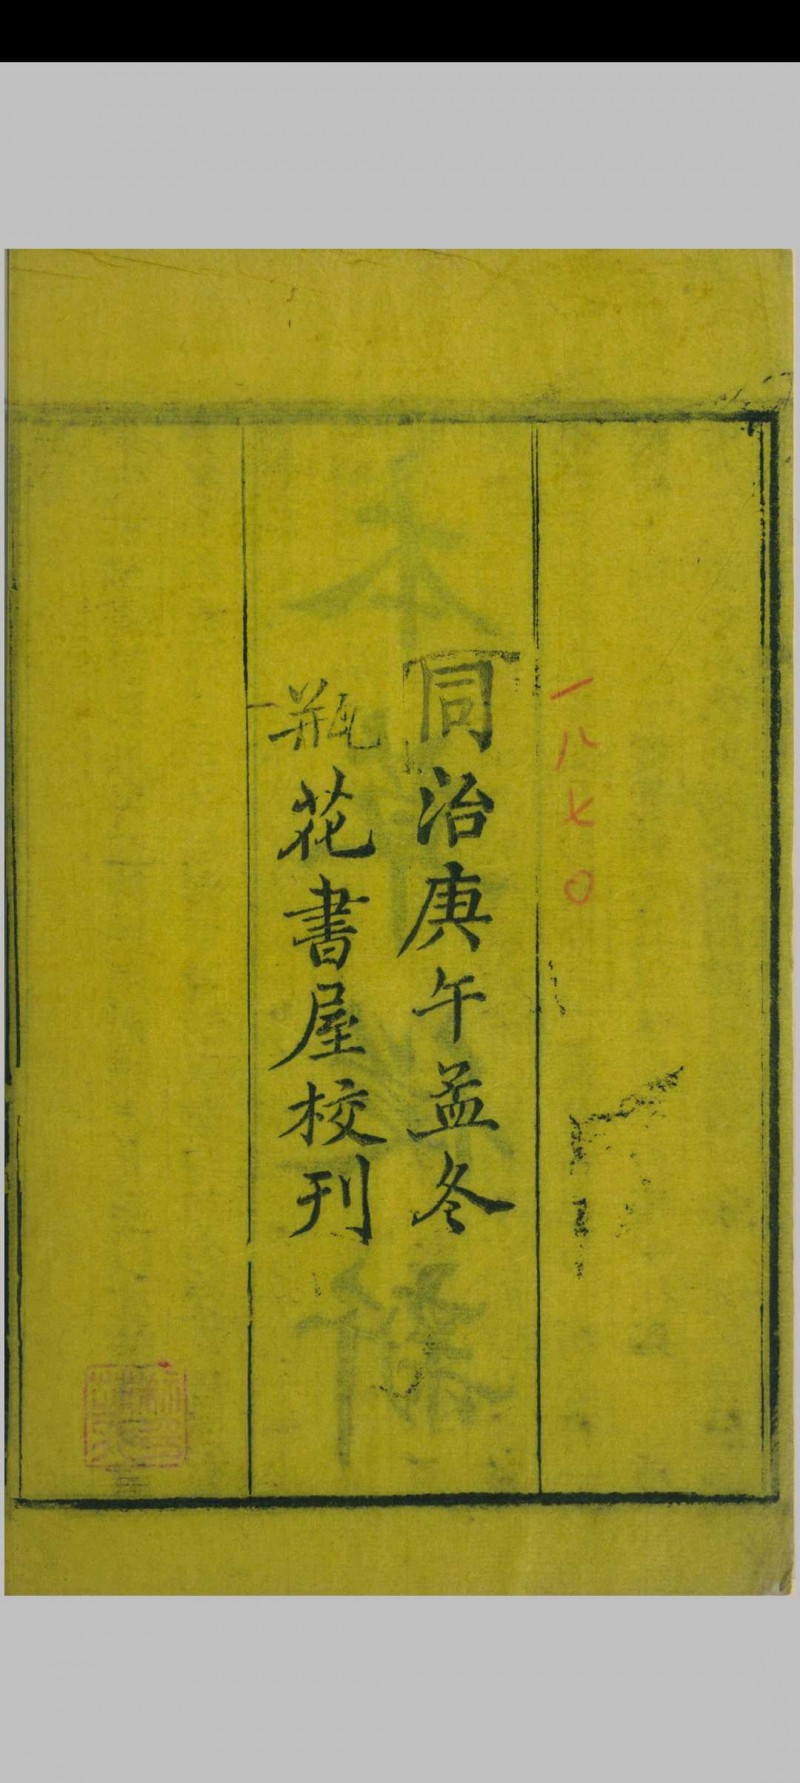 一八七〇
同治庚午孟冬
瓶花書屋校刊